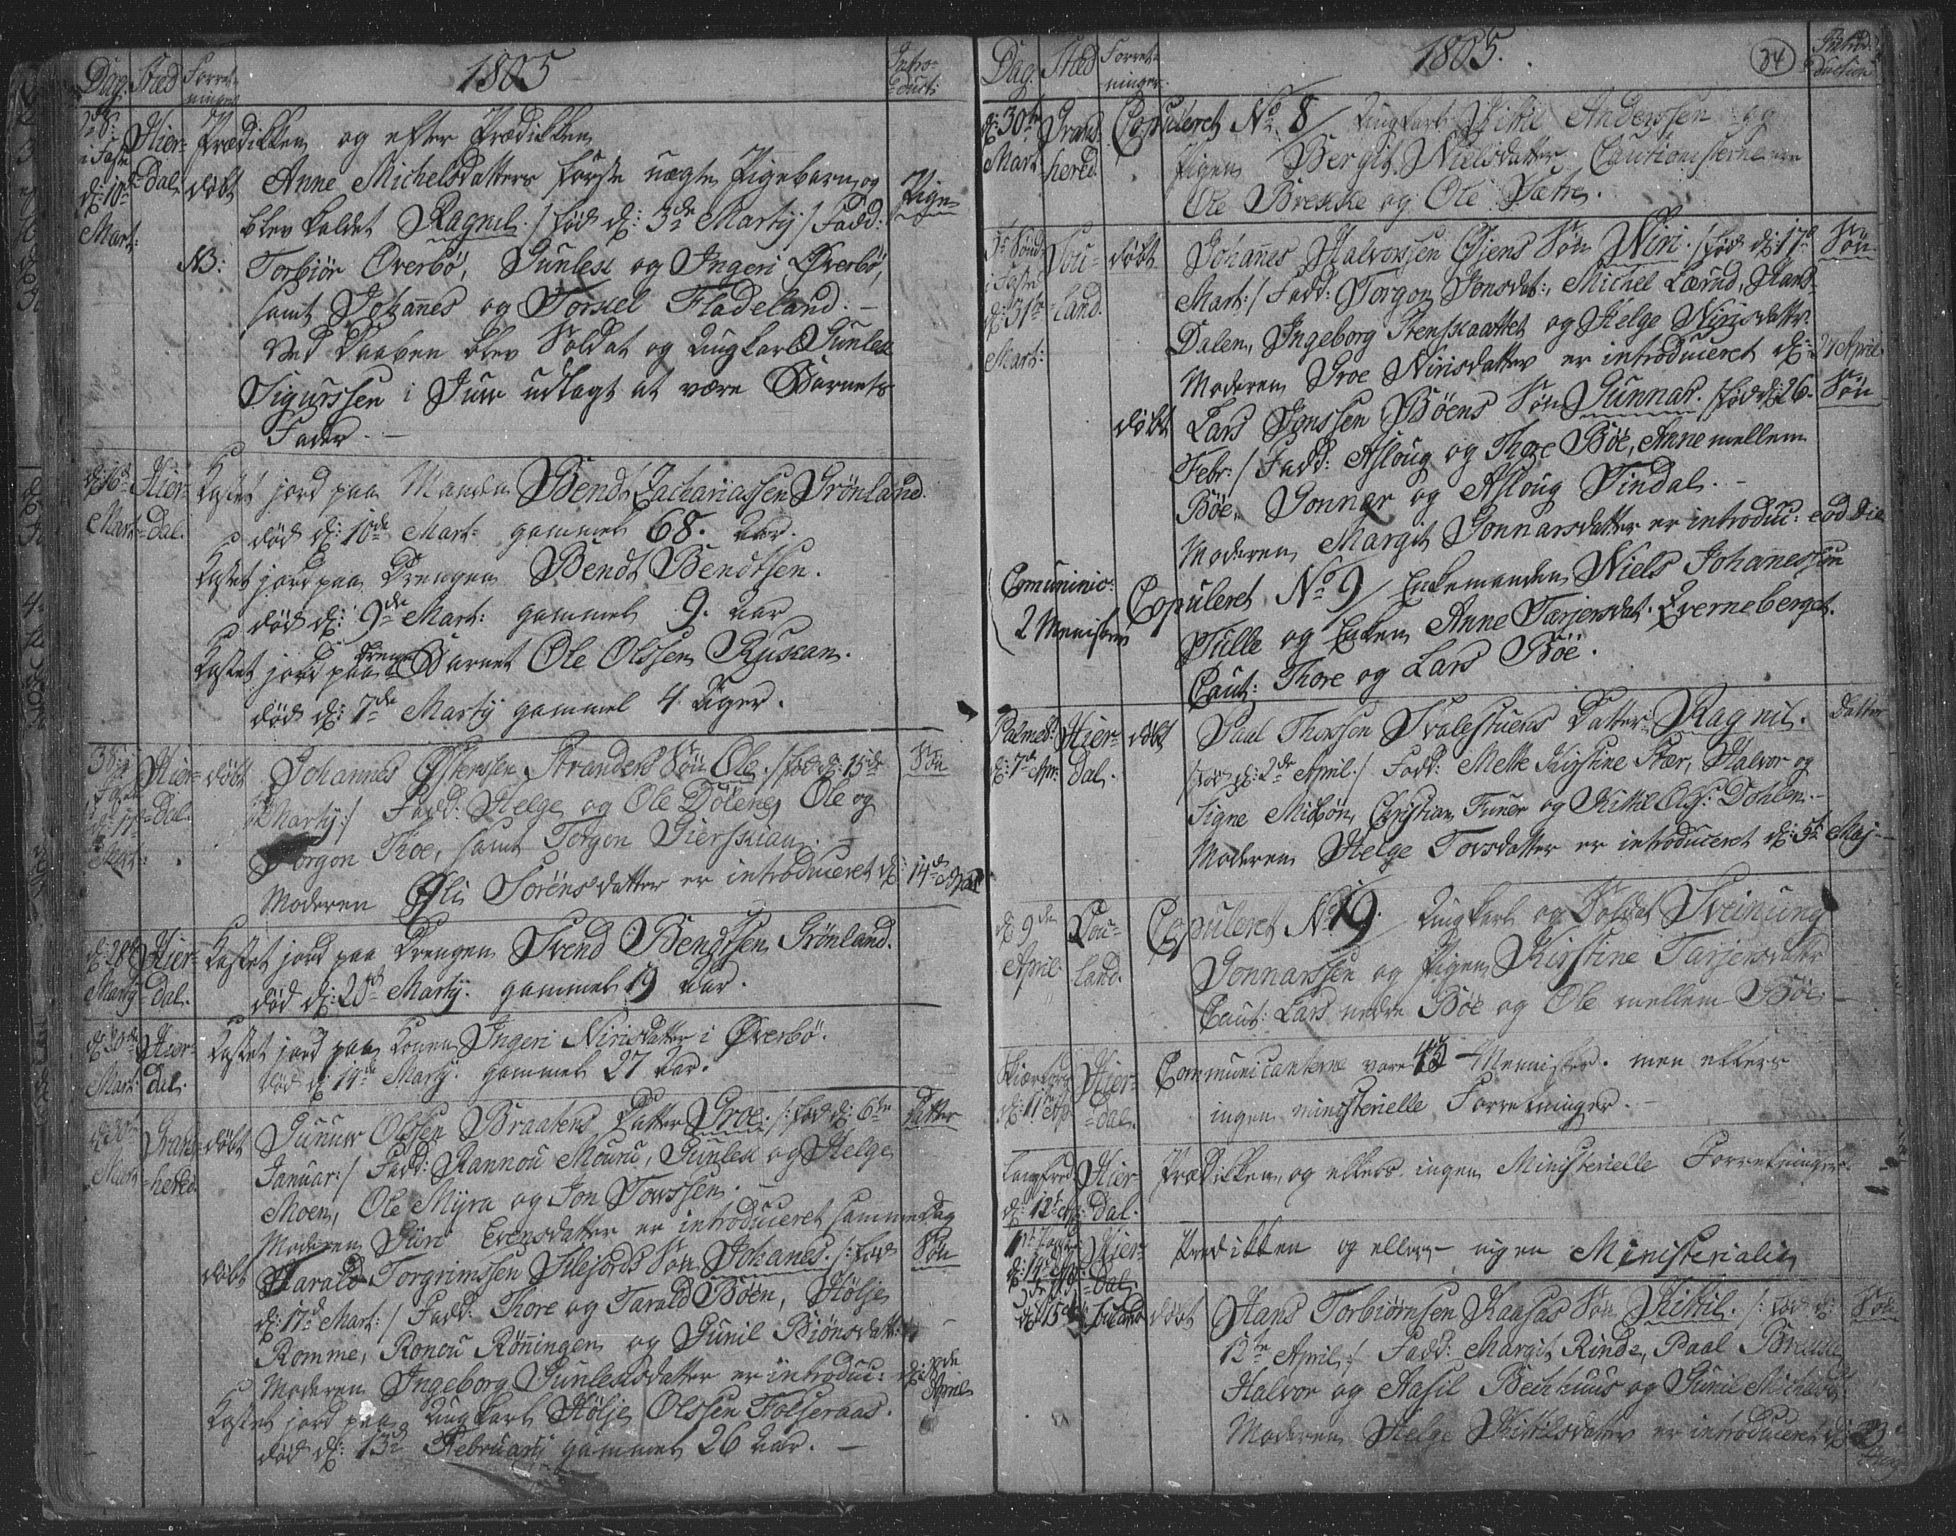 Dag. Sted Forret-
ninger
1805
Intro-
duct:
i Faste
d: 10de
Mart:
Hier-
dal
Prædikken og efter Prædikken
døbt Anne Michelsdatters første uægte Pigebarn og
blev kaldet Ragnil. /: fød d: 3de Martij :/ Fadd:
Pige
NB: Torbiør Øverbø, Gunlek og Ingeri Øverbø,
samt Johannes og Torkel Fladeland. -
Ved Daaben blev Soldat og Ungkarl Gunlek
Sigurssen i Juv udlagt at være Barnets
Fader. -
d: 16de
Mart:
Hier-
dal.
Kastet jord paa Manden Bendt Zachariassen Grønland.
død d: 10de Mart: gammel 68. Aar.
Kastet jord paa Drengen Bendt Bendtsen.
død d: 9de Mart: gammel 9. Aar
Kastet jord paa Drenge Barnet Ole Olssen Rjukan.
død d: 7de Martij gammel 4 Uger.
3die i
Faste
d: 17de
Mart:
Hier-
dal.
døbt Johannes Østenssen Strandens Søn Ole. /: fød d: 15de
Søn
Martij :/ Fadd: Helge og Ole Dølene, Ole og
Torgon Thoe, samt Torgon Gierskaan. -
Moderen Østi Sørensdatter er introduceret d: 14de April
d: 20de
Martij
Hier-
dal.
Kastet jord paa Drengen Svend Bendtsen Grønland.
død d: 20de Martij. gammel 19 Aar.
d: 20de
Mart:
Hier-
dal.
Kastet jord paa Konen Ingeri Nirisdatter i Øverbø.
død d: 14de Martij. gammel 27 Aar.
d: 30te
Mart:
Grans-
hered.
døbt Gunuv Olssen Braatens Datter Groe. /: fød d: 6te
Datter
Januar :/ Fadd: Rannou Mouru, Gunlek og Helge
Moen, Ole Myra og Jon Torssen.
Moderen Guri Evensdatter er introduceret samme Dag
døbt Harald Torgrimssen Silejords Søn Johanes. /: fød
Søn
d: 17de Mart: :/ Fadd: Thore og Tarald Bøen, Hølje
Romme, Ronou Røningen og Gunil Biønsdatter
Moderen Ingeborg Gunleksdatter er introduc: d: 8de
April
Kastet jord paa Ungkarl Hølje Olssen Folseraas.
død d: 13de Februarij gammel 26 Aar. -
Dag. Sted Forret-
ninger.
1805.
34
Introd-
duction
d: 30te
Mart:
Grans
hered.
Copuleret No 8 / Ungkarl Kittil Anderssen og
Pigen Bergit Nielsdatter Cautionisterne ere
Ole Brekke og Ole Sætre.
i Faste
d: 31te
Mart:
Hou-
land.
døbt Johannes Halvorssen Øjens Søn Niri. /: fød d: 17de
Søn
Mart: :/ Fadd: Torgon Jonsdat:, Michel Lærud, Hans
Dalen, Ingeborg Stenskaattet og Helge Nirisdatter
Moderen Groe Nirisdatter er introduceret d: 21 April
døbt Lars Jonssen Bøens Søn Gunnar. /: fød d: 26.
Søn
Febr: :/ Fadd: Asloug og Thore Bøe, Anne mellem
Bøe, Gonnar og Asloug Tindal. -
Moderen Margit Gonnarsdatter er introduc: eod die
Comunic:
2 Menisker
Copuleret No 9 / Enkemanden Niels Johanessen
Tulle og Enken Anne Tarjersdat. Qverneberget.
Caut: Thore og Lars Bøe.
Palmes:
d: 7de Apr:
Hier-
dal.
døbt Paal Thorsen Svalestuens Datter Ragnil.
Datter
/: fød d: 2de April :/ Fadd: Mette Kirstine Stær, Halvor og
Signe Midbøn, Christian Funer og Kittil Ols: Dohlen. -
Moderen Helge Torsdatter er introduceret d: 5te Maj. -
d: 9de
April
Hou-
land.
Copuleret No 19. / Ungkarl og Soldat Sveinung
Gonnarssen og Pigen Kirstine Tarjersdatter
Caut: Lars nedre Bøe og Ole mellem Bøe. -
Skiærtorsd:
d: 11te Ap
Hier-
dal.
Communicanterne vare 42 Mennisker. men ellers
ingen ministerielle Forretninger. -
Langfred:
d: 12te Ap:
Hier
dal.
Prædikken og ellers ingen Ministerielle Forretninger.
d: 14de Ap
Hier-
dal
Prædikken og ellers ingen Ministerialia
d: 15de
døbt Hans Torbiørnsen Kaasas Søn Kittil. /: fød d:
Søn
12te April :/ Fadd: Margit Rinde, Paal Brekke
Halvor og Aasil Bechhuus og Gunil Michelsd:
Moderen Helge Kittilsdatter er introduceret d: